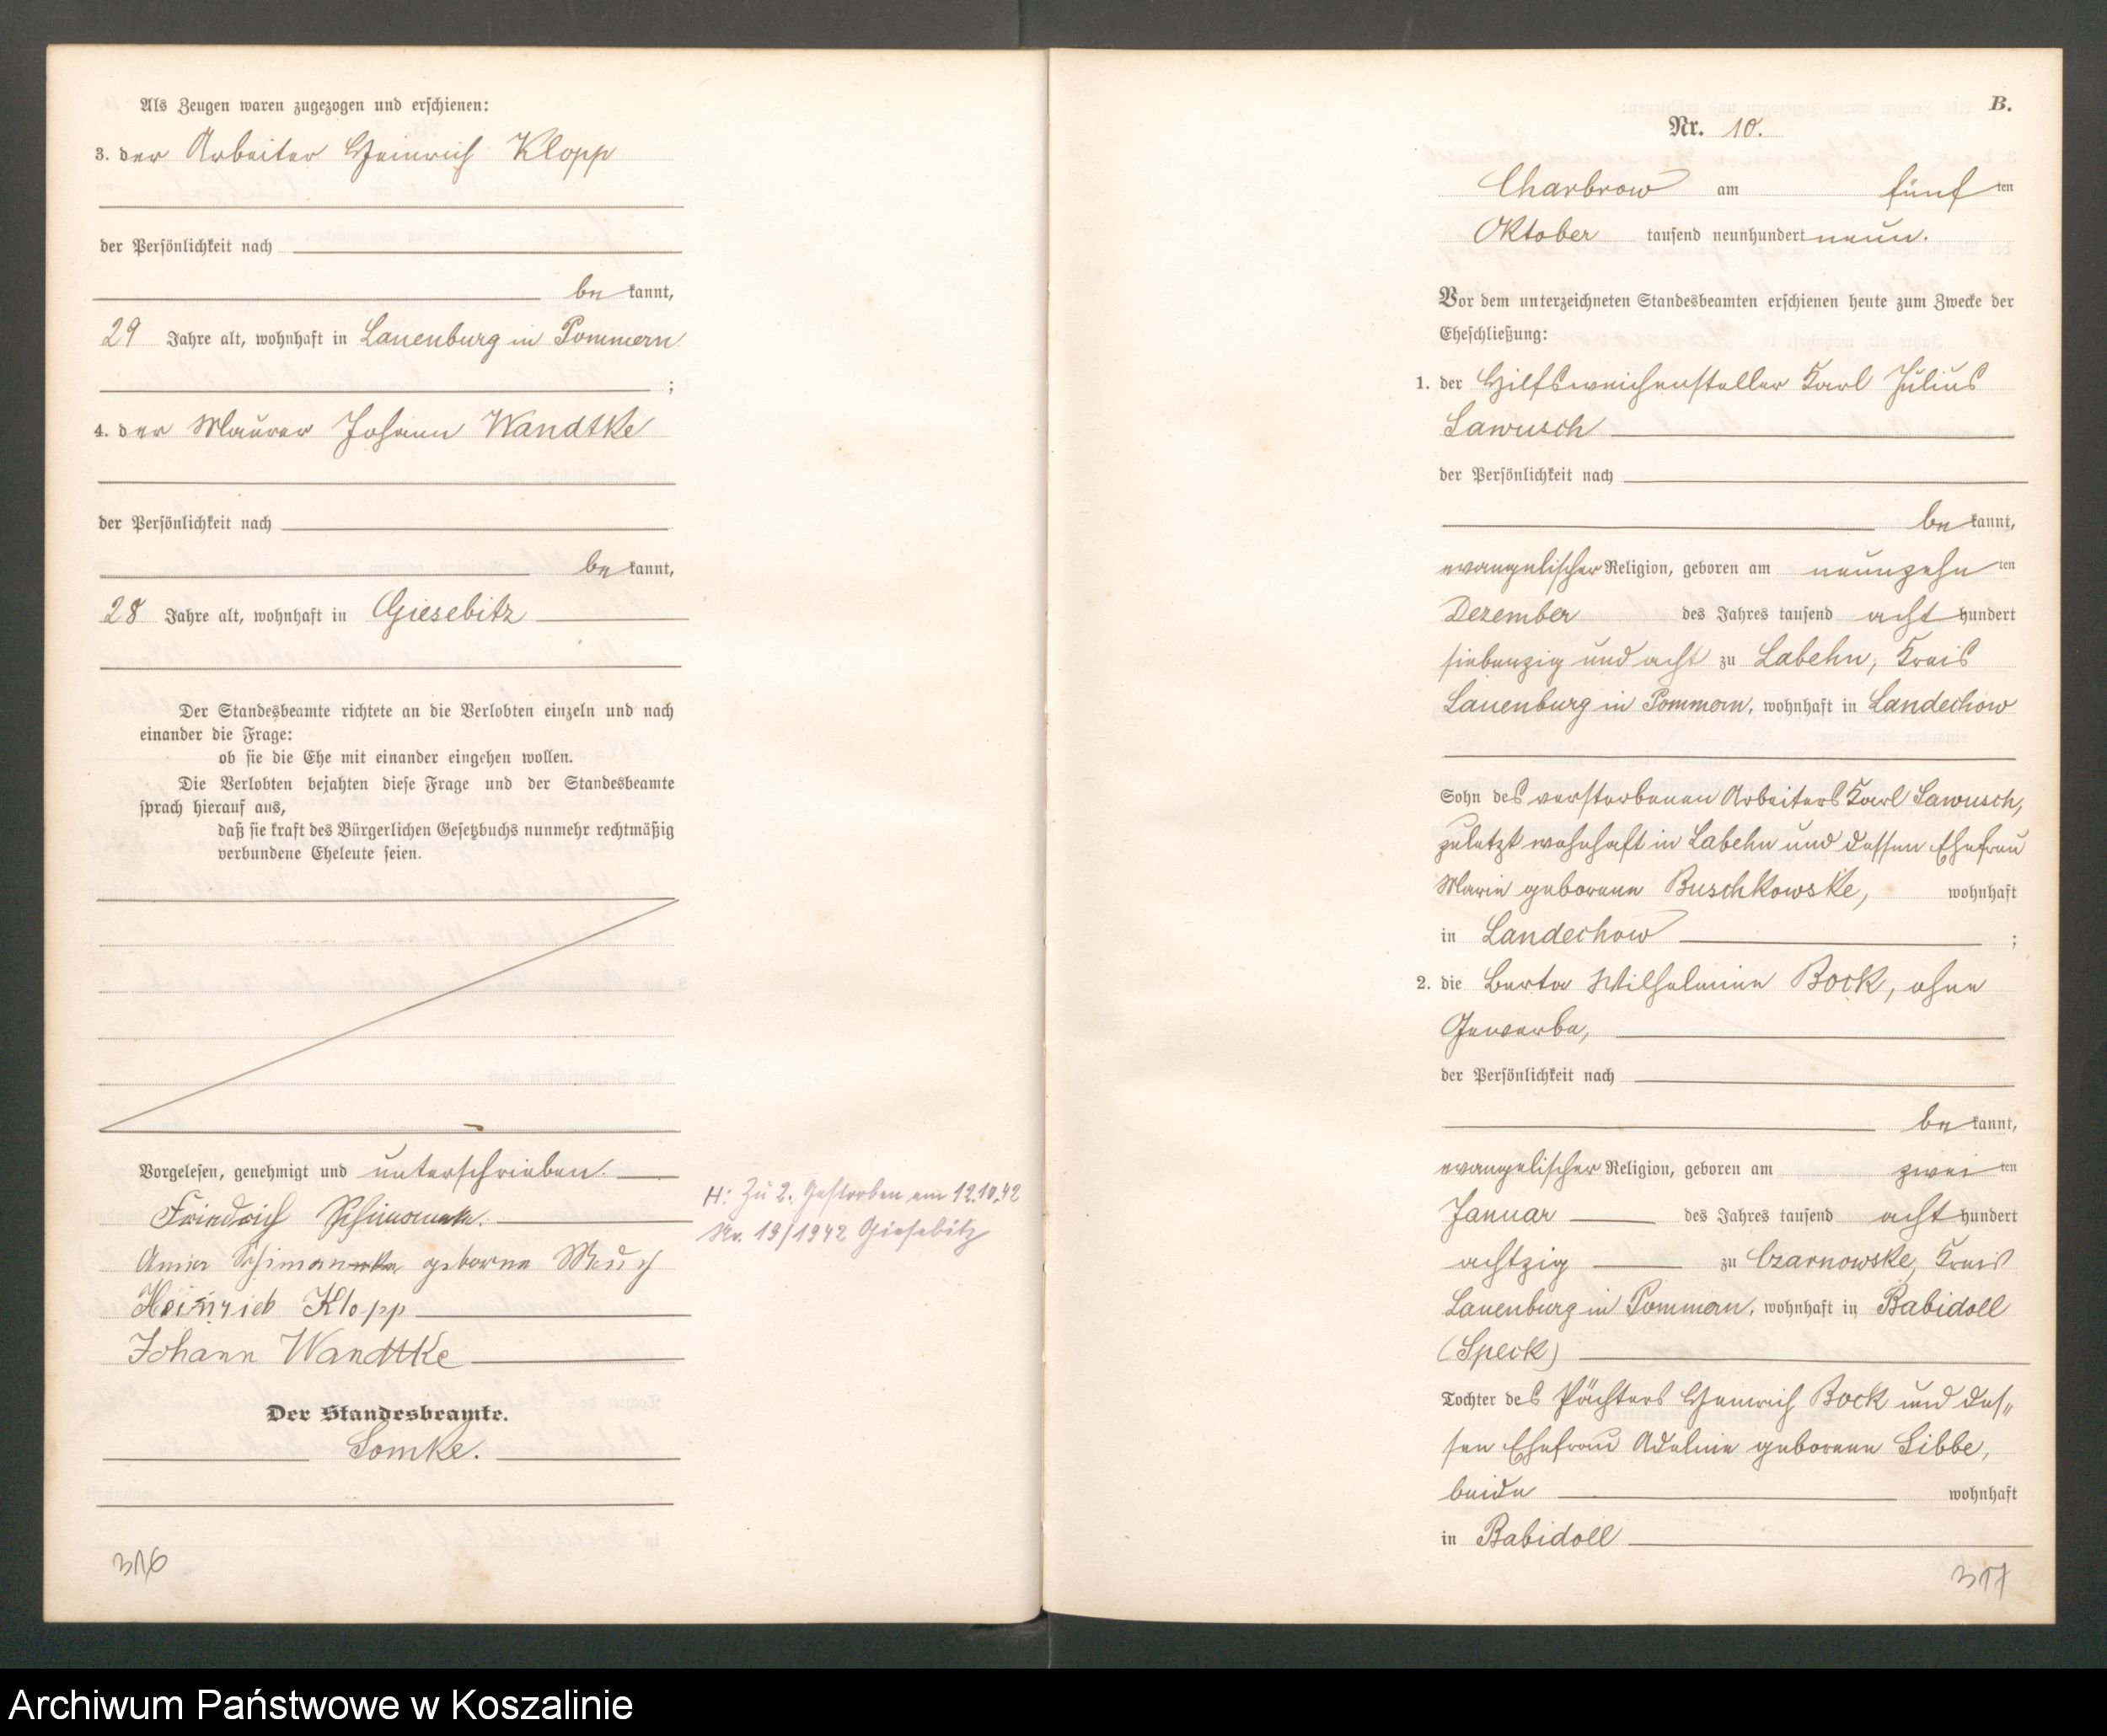 Als Zeugen waren zugezogen und erschienen:
3. der Arbeiter Heinrich Klopp
der Persönlichkeit nach
be kannt,
29 Jahre alt, wohnhaft in Lauenburg in Pommern
;
4. der Maurer Johann Wandtke
der Persönlichkeit nach
be kannt,
28 Jahre alt, wohnhaft in Giesebitz
Der Standesbeamte richtete an die Verlobten einzeln und nach
einander die Frage:
ob sie die Ehe mit einander eingehen wollen.
Die Verlobten bejahten diese Frage und der Standesbeamte
sprach hierauf aus,
daß sie kraft des Bürgerlichen Gesetzbuchs nunmehr rechtmäßig
verbundene Eheleute seien.
Vorgelesen, genehmigt und unterschrieben.
Friedrich
geborne
Heinrich Klopp
Johann Wandtke
Der Standesbeamte.
Somke.
H: Zu 2. Gestorben am 12.10.42
Nr. 19/1942 Giesebitz
316
B.
Nr. 10.
Charbrow am fünf ten
Oktober tausend neunhundert neun.
Vor dem unterzeichneten Standesbeamten erschienen heute zum Zwecke der
Eheschließung:
1. der Hilfsweichensteller Karl Julius
Lawusch
der Persönlichkeit nach
be kannt,
evangelischer Religion, geboren am neunzehn ten
Dezember des Jahres tausend acht hundert
siebenzig und acht zu Labehn, Kreis
Lauenburg in Pommern, wohnhaft in Landechow
Sohn des verstorbenen Arbeiters Karl Lawusch,
zuletzt wohnhaft in Labehn und dessen Ehefrau
Marie geborene Buschkowske, wohnhaft
in Landechow ;
2. die Berta Wilhelmine Bock, ohne
Gewerbe,
der Persönlichkeit nach
be kannt,
evangelischer Religion, geboren am zwei ten
Januar des Jahres tausend acht hundert
achtzig zu Czarnowske, Kreis
Lauenburg in Pommern, wohnhaft in Babidoll
(Speck)
Tochter des Pächters Heinrich Bock und des„
sen Ehefrau Adeline geborene Libbe,
beide wohnhaft
in Babidoll
317
Archiwum Państwowe w Koszalinie